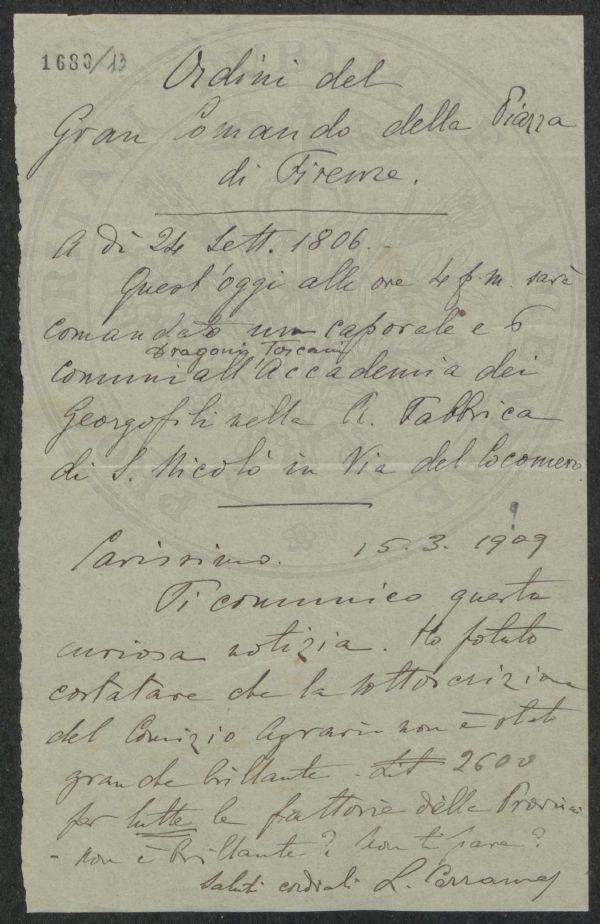 1680/13
Ordini del
Gran Comando della Piazza
di Firenze.
A dì 24 Sett. 1806.-
Quest'oggi alle ore 4 p.m. sarà
comandato un caporale e 6
Dragoni Toscani
comuni all'Accademia dei
Georgofili nella R. Fabbrica
di S. Nicolò in Via del Cocomero.
Carissimo. 15.3.1909
Ti comunico questa
curiosa notizia. Ho potuto
costatare che la sottoscrizione
del Comizio Agrario non è stata
granche brillante. Lit 2600
per tutte le fattorie della Provincia
- non è brillante? Non ti pare?
Saluti cordiali L.